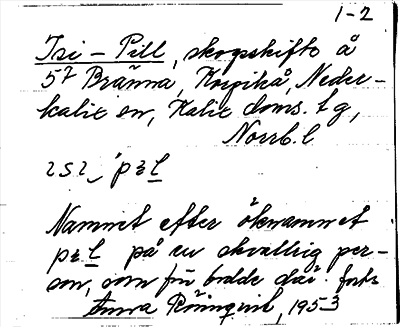 1-2
Isi - Pell, skogskifte å
5⁷ Bränna, Korpikå, Neder-
kalix sn, Kalix doms. t g,
Norrb. l
Namnet efter öknamnet
på en skvallrig per-
son, som för bodde där. forts
Anna Rönnqvist, 1953